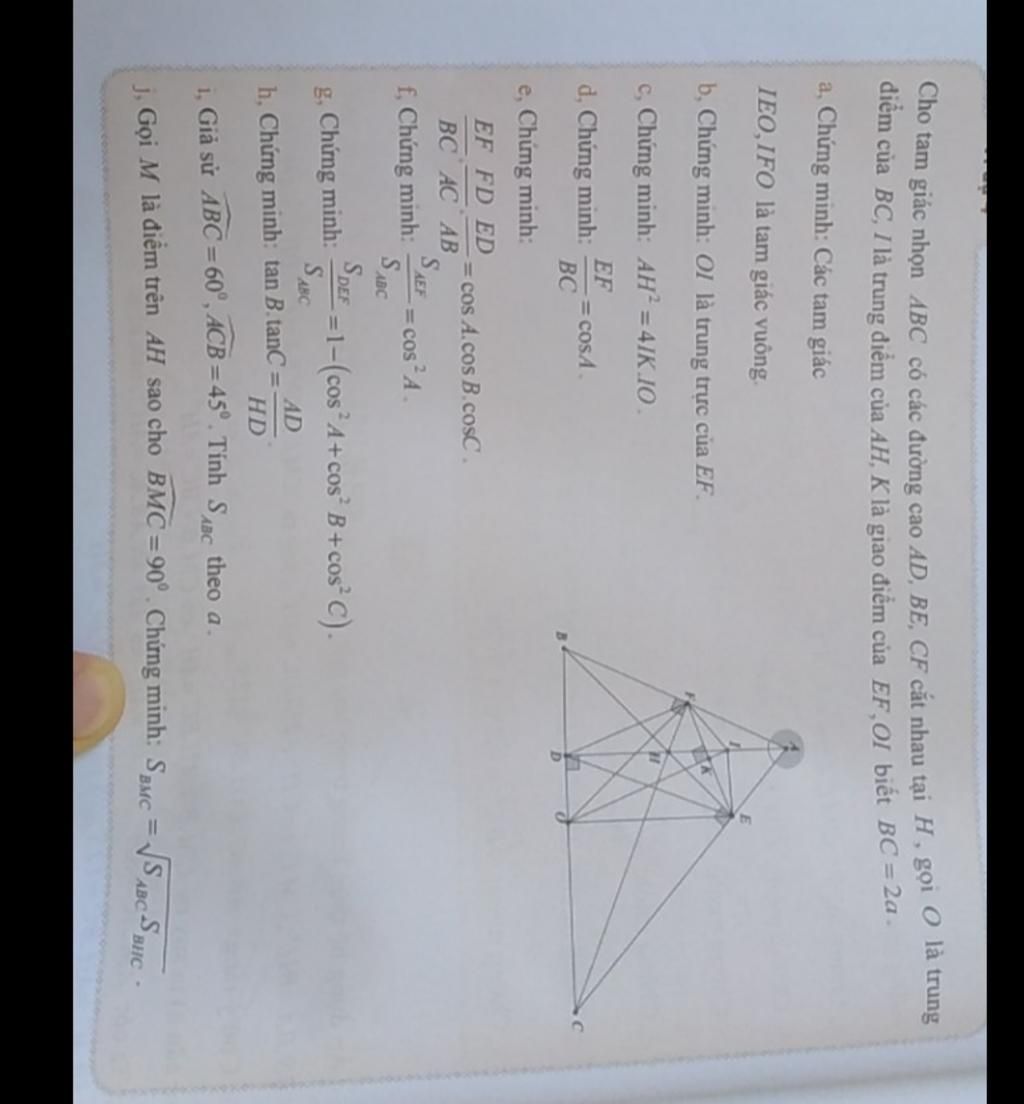 Cho tam giác nhọn ABC có các đường cao AD, BE, CF cắt nhau tại H, gọi O là trung
điểm của BC, I là trung điểm của AH, K là giao điểm của EF, OI biết BC = 2a.
a, Chứng minh: Các tam giác
IEO, IFO là tam giác vuông.
b, Chứng minh: OI là trung trực của EF.
c, Chứng minh: AH² = 4IK.IO.
d, Chứng minh: EF/BC = cosA.
e, Chứng minh:
EF/BC . FD/AC . ED/AB = cos A.cos B.cosC.
f, Chứng minh: S_AEF/S_ABC = cos² A.
g, Chứng minh: S_DEF/S_ABC = 1 − (cos² A + cos² B + cos² C).
h, Chứng minh: tan B.tanC = AD/HD.
i, Giả sử ABC = 60⁰, ACB = 45⁰. Tính S_ABC theo a.
j, Gọi M là điểm trên AH sao cho BMC = 90⁰. Chứng minh: S_BMC = √(S_ABC.S_BHC).
A
E
I
F
K
H
B
D
O
C